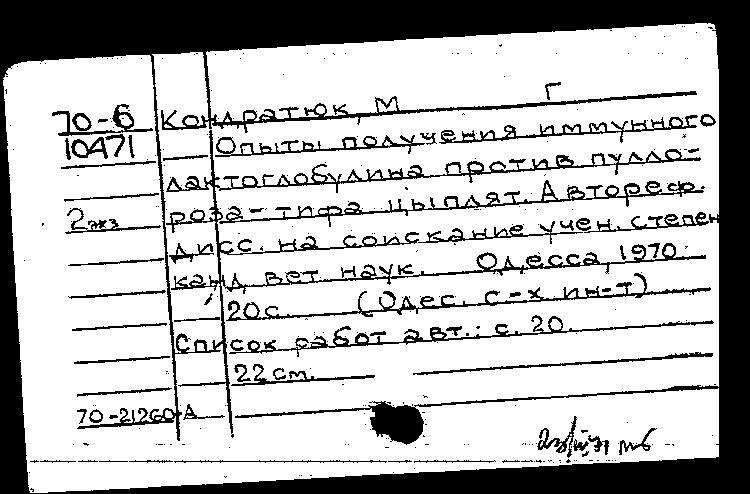 70-6 Кондратюк, М Г
10471 Опыты получения иммунного
лактоглобулина против пулло-
2экз роза-тифа цыплят. Автореф.
дисс. на соискание учен. степен
канд вет наук. Одесса, 1970.
20с. (Одес. с-х ин-т)
Список работ авт.: с. 20.
22 см.
70-21260 А